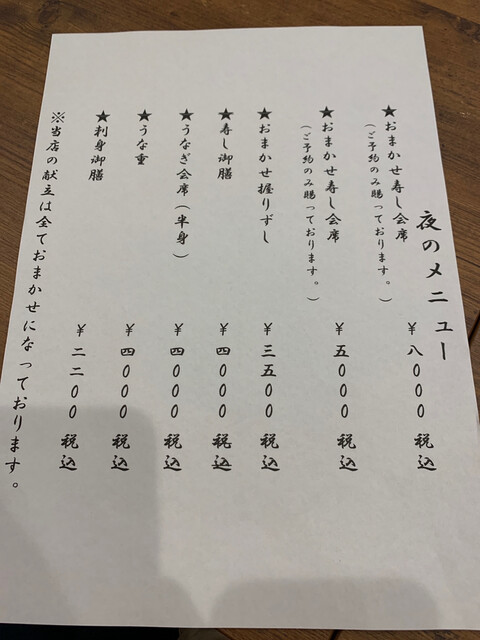 夜のメニュー
★おまかせ寿し会席 ¥八〇〇〇 税込
(ご予約のみ賜っております。)
★おまかせ寿し会席 ¥五〇〇〇 税込
(ご予約のみ賜っております。)
★おまかせ握りずし ¥三五〇〇 税込
★寿し御膳 ¥四〇〇〇 税込
★うなぎ会席(半身) ¥四〇〇〇 税込
★うな重 ¥四〇〇〇 税込
★刺身御膳 ¥二二〇〇 税込
※当店の献立は全ておまかせになっております。